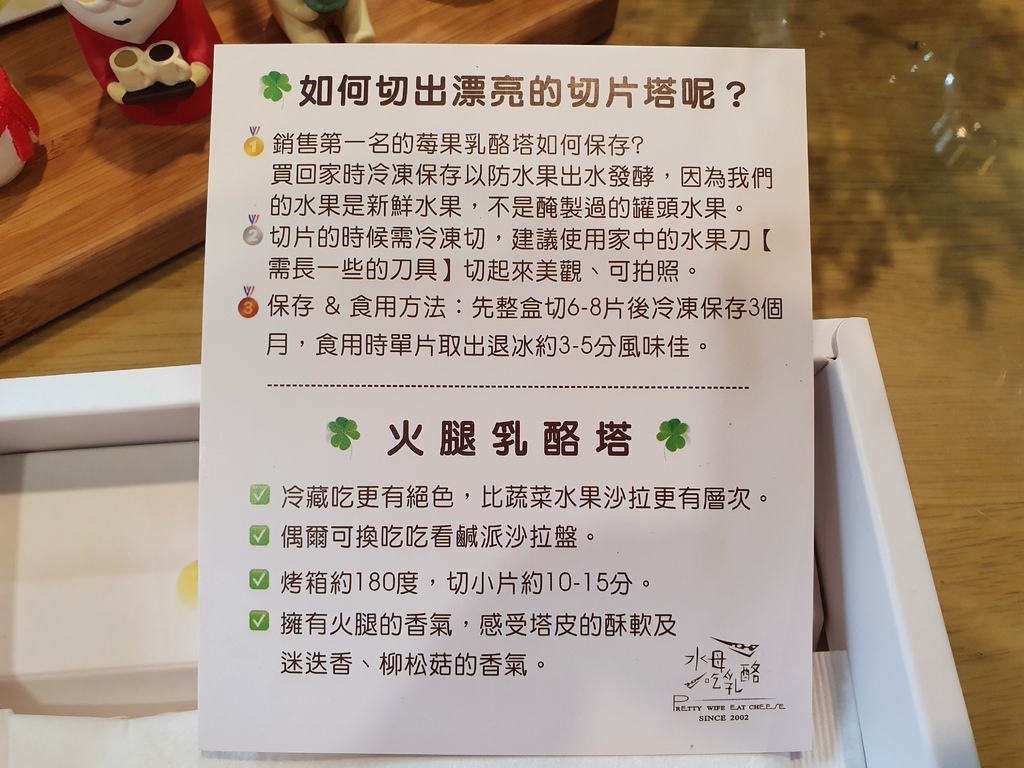 如何切出漂亮的切片塔呢？
1 銷售第一名的莓果乳酪塔如何保存?
買回家時冷凍保存以防水果出水發酵，因為我們
的水果是新鮮水果，不是醃製過的罐頭水果。
2 切片的時候需冷凍切，建議使用家中的水果刀【
需長一些的刀具】切起來美觀、可拍照。
3 保存 & 食用方法：先整盒切6-8片後冷凍保存3個
月，食用時單片取出退冰約3-5分風味佳。
火腿乳酪塔
冷藏吃更有絕色，比蔬菜水果沙拉更有層次。
偶爾可換吃吃看鹹派沙拉盤。
烤箱約180度，切小片約10-15分。
擁有火腿的香氣，感受塔皮的酥軟及
迷迭香、柳松菇的香氣。
水母
吃乳酪
PRETTY WIFE EAT CHEESE
SINCE 2002